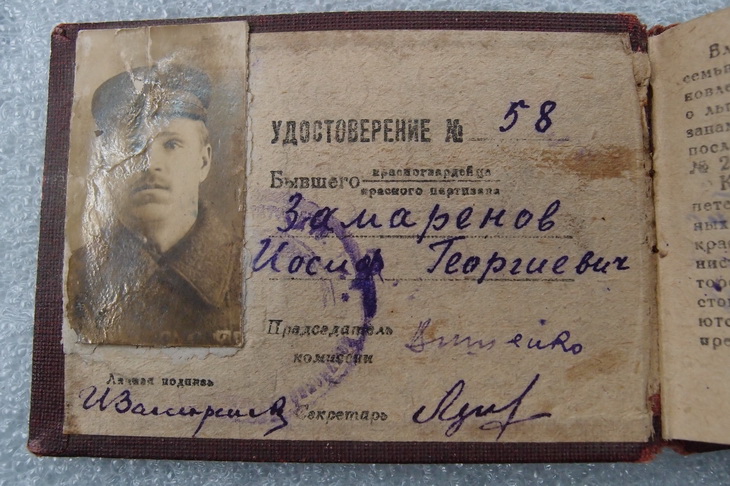 УДОСТОВЕРЕНИЕ № 58
Бывшего красногвардейца
красного партизана
Замаренов
Иосиф Георгиевич
Председатель
комиссии
Личная подпись
Секретарь
семьи
новле
о ль
запа
посл
№ 2
пете
ных
крас
нис
торо
сто
ют
пре